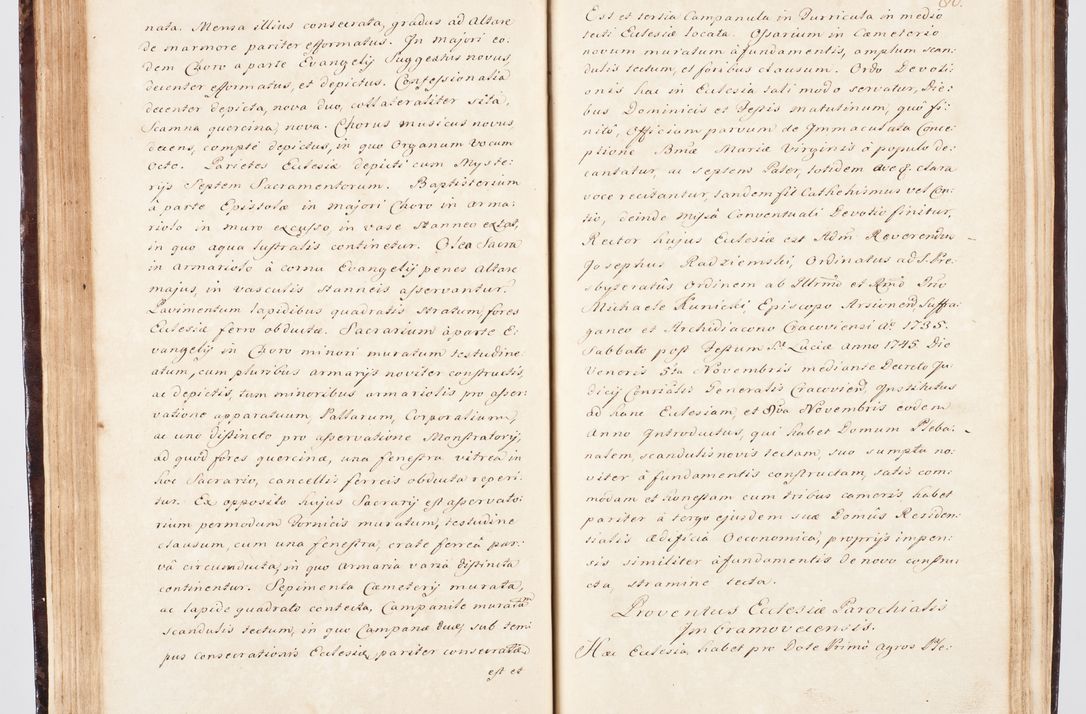 nata. Mensa illius consecrata, gradus ad Altare
de marmore pariter efformatus. In majori eo-
dem Choro a parte Evangelij Suggestus novus,
decenter efformatus, et depictus. Confessionalia
decenter depicta, nova duo, collateraliter sita,
Scamna quercina, nova. Chorus musicus novus,
decens, compte depictus, in quo Organum vocum
octo. Parietes Ecclesiæ depicti cum Myste-
rijs Septem Sacramentorum. Baptisterium
à parte Epistolæ in majori Choro in arma-
riolo in muro excusso, in vase stanneo extat,
in quo aqua lustralis continetur. Olea Sacra
in armariolo à cornu Evangelij penes Altare
majus, in vasculis stanneis asservantur.
Pavimentum lapidibus quadratis stratum, fores
Ecclesiæ ferro obductæ. Sacrarium à parte E-
vangelij in Choro minori muratum testudine-
atum, cum pluribus armarijs noviter constructis,
ac depictis, tum minoribus armariolis pro asser-
vatione apparatuum, Pallarum, Corporalium,
ac uno distincto pro asservatione Monstratorij,
ad quod fores quercinæ, una fenestra vitrea in
hoc Sacrario, cancellis ferreis obducta reperi-
tur. Ex opposito hujus Sacrarij est asservato-
rium permodum Fornicis muratum, testudine
clausum, cum una fenestra, crate ferreâ par-
vâ circumducta, in quo Armaria varia distincta
continentur. Sepimenta Cæmeterij murata,
ac lapide quadrato contecta, Campanile muratum
scandulis tectum, in quo Campanæ duæ, sub tem-
pus consecrationis Ecclesiæ, pariter consecratæ
est et
Est et tertia Campanula in Turricula in medio
tecti Ecclesiæ locata. Ossarium in Cæmeterio
novum muratum à fundamentis, amplum scan-
dulis tectum, et foribus clausum. Ordo Devoti-
onis hac in Ecclesia tali modo servatur, Die-
bus Dominicis et Festis matutinum, quô fi-
nitô, Officium parvum de Immaculata Conce-
ptione Bmæ Mariæ Virginis à populo de-
cantatur, ac septem Pater, totidem Ave &. clara
voce recitantur, tandem fit Cathehismus vel Con-
tio, deinde Missâ Conventuali Devotio finitur,
Rector hujus Ecclesiæ est Adm Reverendus
Josephus Radziemski, Ordinatus ad S. Pre-
sbyteratûs Ordinem ab Illrmo et Rmo Dno
Michaele Kunicki, Episcopo Arsionen̄ Suffra-
ganeo et Archidiacono Cracoviensi Ao 1735.
Sabbato post Festum S. Luciæ anno 1745. Die
Veneris 5ta Novembris mediante Decreto Ju-
dicij Conrialis Generalis Cracovien̄, Institutus
ad hanc Ecclesiam, et 8va Novembris eodem
Anno Introductus, qui habet Domum Pleba-
nalem, scandulis novis tectam, suo sumptu no-
viter à fundamentis constructam, satis com-
modam et honestam cum tribus cameris habet
pariter à tergo ejusdem suæ Domûs Residen-
tialis ædificia Oeconomica, proprijs impen-
sis similiter à fundamentis de novo constru-
cta, stramine tecta.
Proventus Ecclesiæ Parochialis
Imbramovecensis.
Hæc Ecclesia habet pro Dote Primô agros Ple-